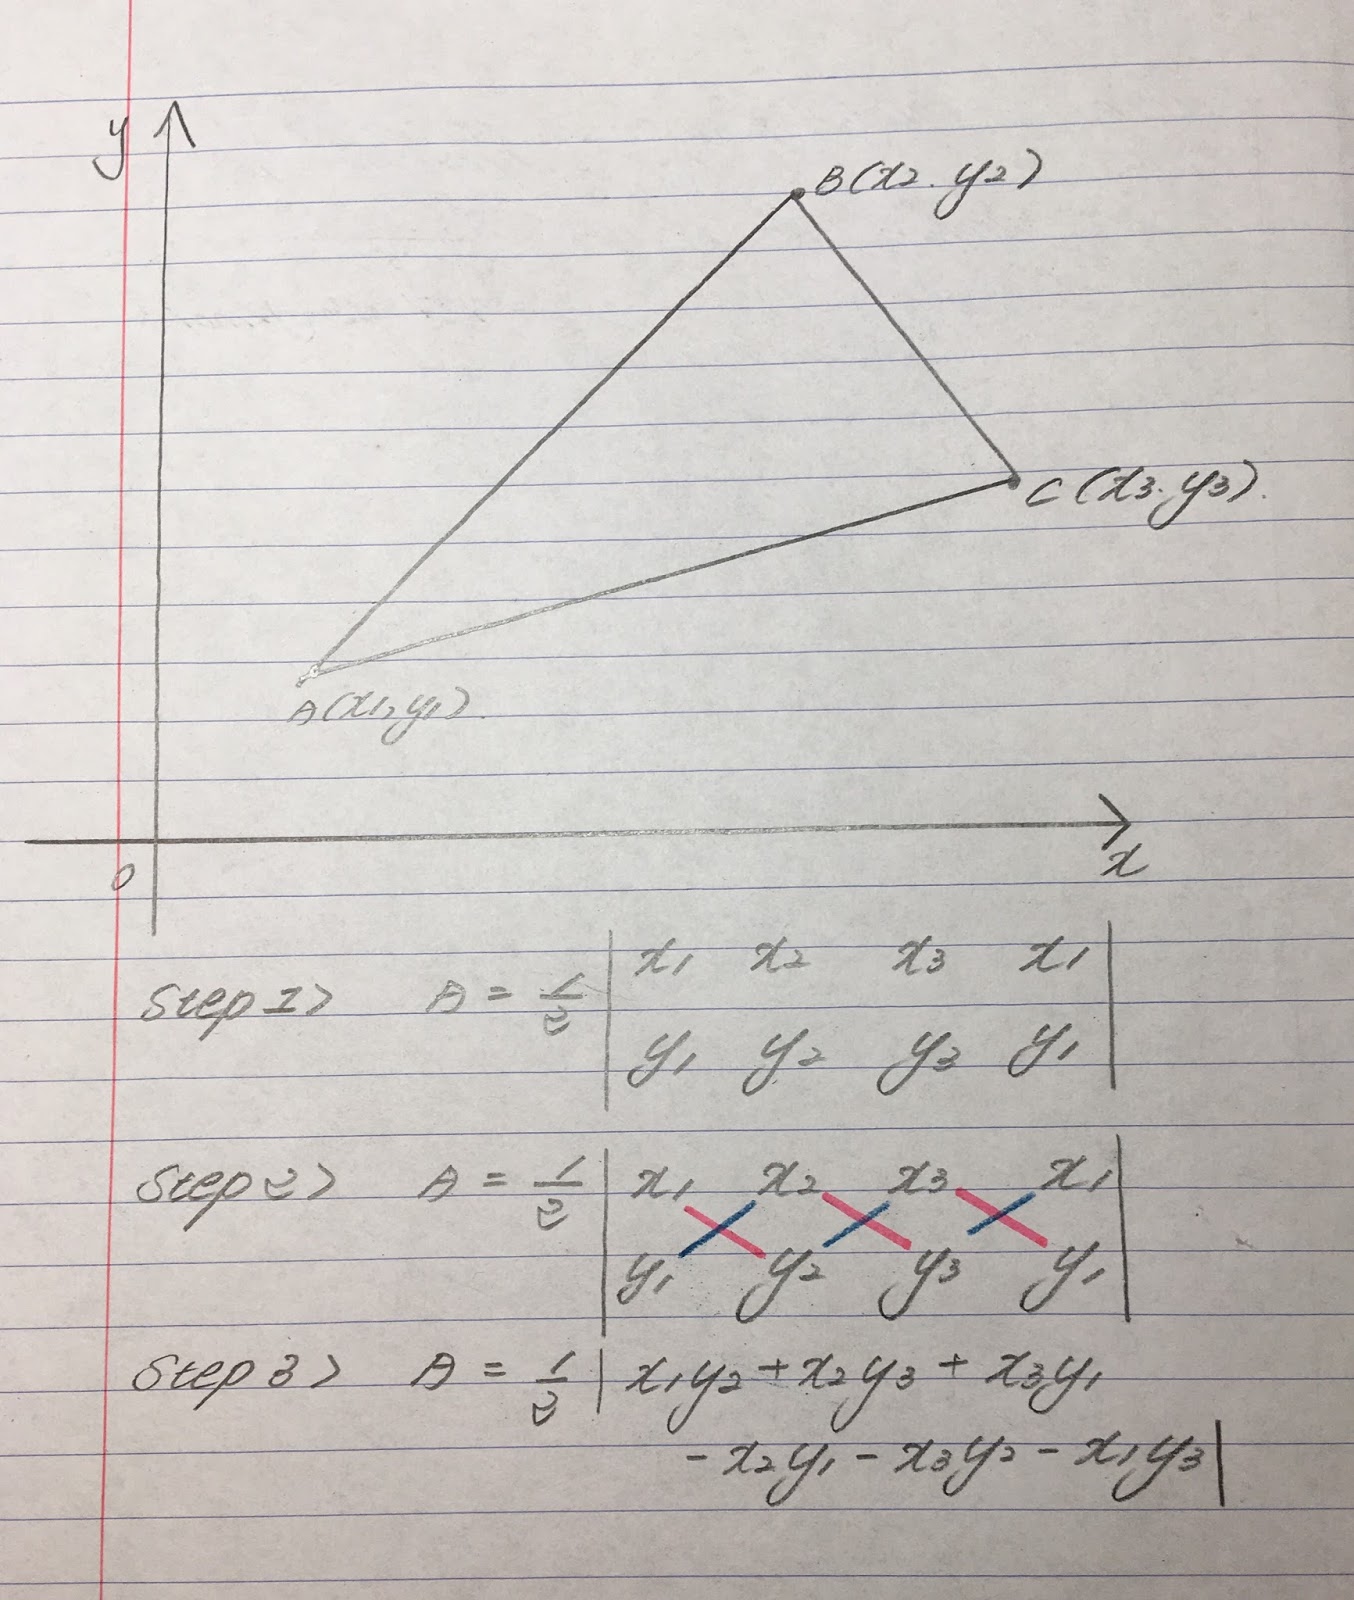 y
B(x2. y2)
C(x3. y3).
A(x1, y1).
0
x
Step 1> A = 1/2 | x1 x2 x3 x1 |
| y1 y2 y3 y1 |
Step 2> A = 1/2 | x1 x2 x3 x1 |
| y1 y2 y3 y1 |
Step 3> A = 1/2 | x1y2 + x2y3 + x3y1
- x2y1 - x3y2 - x1y3 |